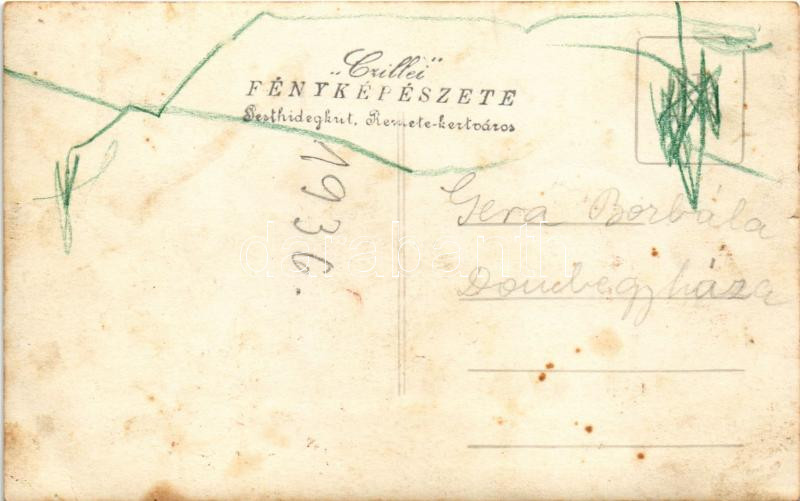 „Czillei”
FÉNYKÉPÉSZETE
Pesthidegkut, Remete-kertváros
1936.
Gera Borbála
Dombegyháza
darabanth